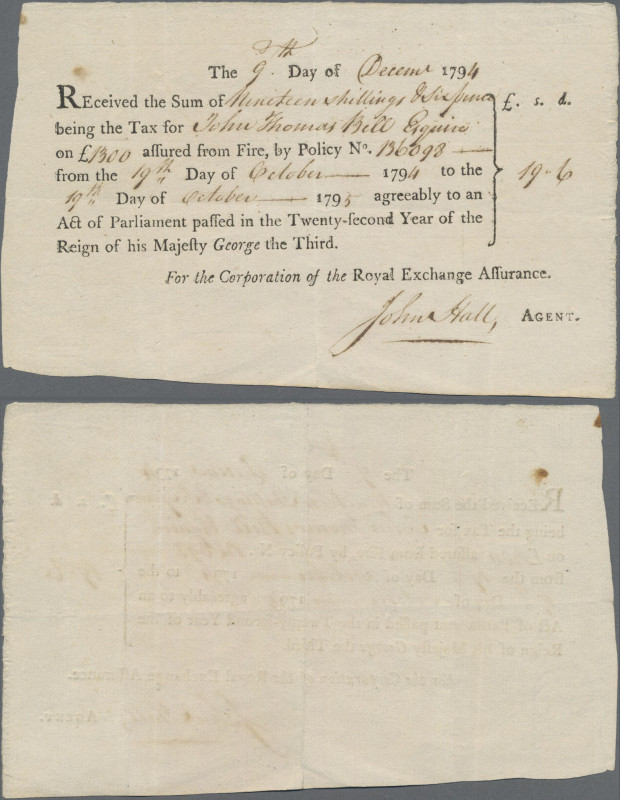 The 9th Day of Decemr 1794
REceived the Sum of Nineteen shillings & Sixpence £. s. d.
being the Tax for John Thomas Bill Esquire
on £1300 aſſured from Fire, by Policy No. 136098
from the 19th Day of October 1794 to the 19 - 6
19th Day of October 1795 agreeably to an
Act of Parliament paſſed in the Twenty-ſecond Year of the
Reign of his Majeſty George the Third.
For the Corporation of the Royal Exchange Aſſurance.
John Hall, AGENT.